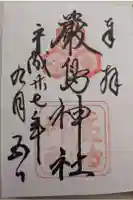 奉拝
厳島神社
平成廿七年
九月五日